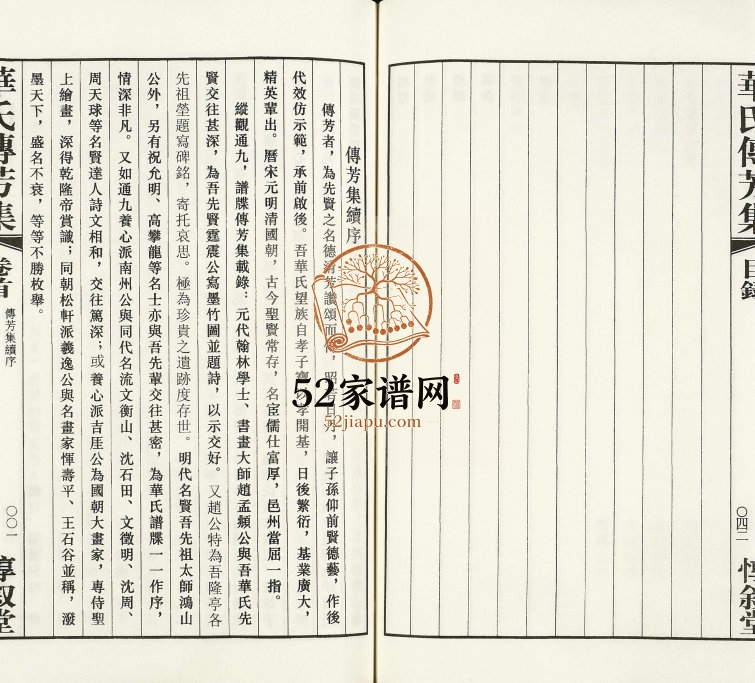 華氏傳芳集
目錄
〇四二
惇敘堂
傳芳集續序
傳芳者，為先賢之名德清芬讚頌而
讓子孫仰前賢德藝，作後
代效仿示範，承前啟後。吾華氏望族自孝子寶
孝開基，日後繁衍，基業廣大，
精英輩出。曆宋元明清國朝，古今聖賢常存，名宦儒仕富厚，邑州當屈一指。
縱觀通九，譜牒傳芳集載錄：元代翰林學士、書畫大師趙孟頫公與吾華氏先
賢交往甚深，為吾先賢霆震公寫墨竹圖並題詩，以示交好。又趙公特為吾隆亭各
先祖塋題寫碑銘，寄托哀思。極為珍貴之遺跡度存世。明代名賢吾先祖太師鴻山
公外，另有祝允明、高攀龍等名士亦與吾先輩交往甚密，為華氏譜牒一一作序，
情深非凡。又如通九養心派南州公與同代名流文衡山、沈石田、文徵明、沈周、
周天球等名賢達人詩文相和，交往篤深；或養心派吉厓公為國朝大畫家，專侍聖
上繪畫，深得乾隆帝賞識；同朝松軒派羲逸公與名畫家惲壽平、王石谷並稱，潑
墨天下，盛名不衰，等等不勝枚舉。
華氏傳芳集
卷首
傳芳集續序
〇〇一
惇敘堂
52家谱网
52jiapu.com